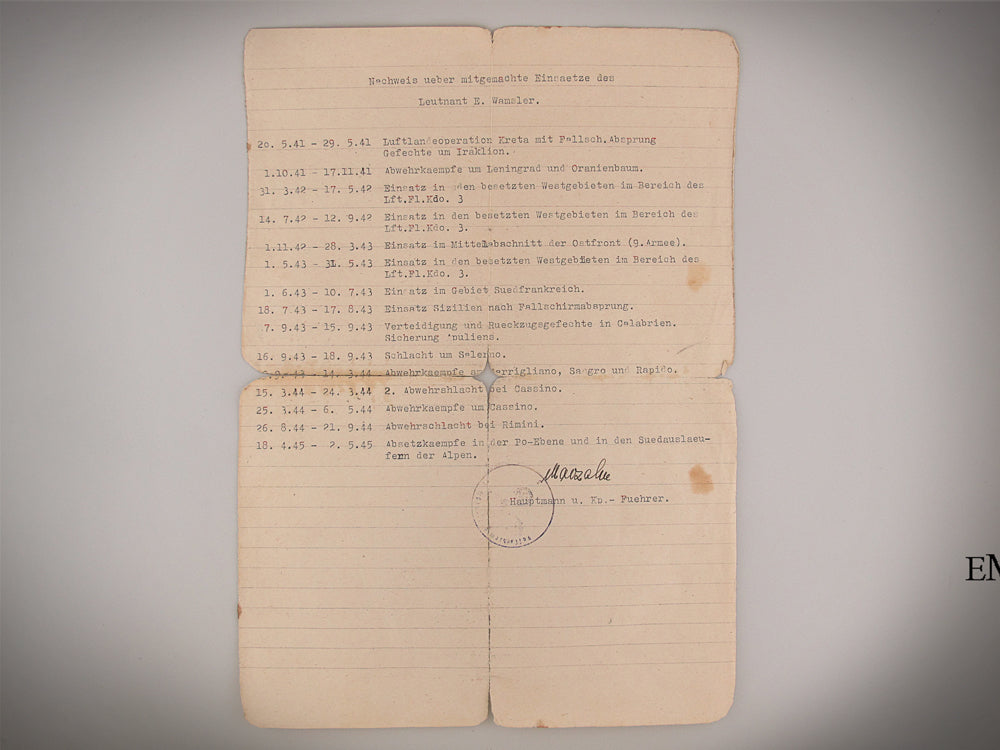 Nachweis ueber mitgemachte Einsaetze des
Leutnant E. Wamsler.
20. 5.41 - 29. 5.41 Luftlandeoperation Kreta mit Fallsch.Absprung
Gefechte um Iraklion.
1.10.41 - 17.11.41 Abwehrkaempfe um Leningrad und Oranienbaum.
31. 3.42 - 17. 5.42 Einsatz in den besetzten Westgebieten im Bereich des
Lft.Fl.Kdo. 3
14. 7.42 - 12. 9.42 Einsatz in den besetzten Westgebieten im Bereich des
Lft.Fl.Kdo. 3.
1.11.42 - 28. 3.43 Einsatz im Mittelabschnitt der Ostfront (9.Armee).
1. 5.43 - 31. 5.43 Einsatz in den besetzten Westgebieten im Bereich des
Lft.Fl.Kdo. 3.
1. 6.43 - 10. 7.43 Einsatz im Gebiet Suedfrankreich.
18. 7.43 - 17. 8.43 Einsatz Sizilien nach Fallschirmabsprung.
7. 9.43 - 15. 9.43 Verteidigung und Rueckzugsgefechte in Calabrien.
Sicherung puliens.
16. 9.43 - 18. 9.43 Schlacht um Salerno.
14. 3.44 Abwehrkaempfe am Garrigliano, Sangro und Rapido.
15. 3.44 - 24. 3.44 2. Abwehrshlacht bei Cassino.
25. 3.44 - 6. 5.44 Abwehrkaempfe um Cassino.
26. 8.44 - 21. 9.44 Abwehrschlacht bei Rimini.
18. 4.45 - 2. 5.45 Absetzkaempfe in der Po-Ebene und in den Suedauslaeu-
fern der Alpen.
Hauptmann u. Kp.- Fuehrer.
EM